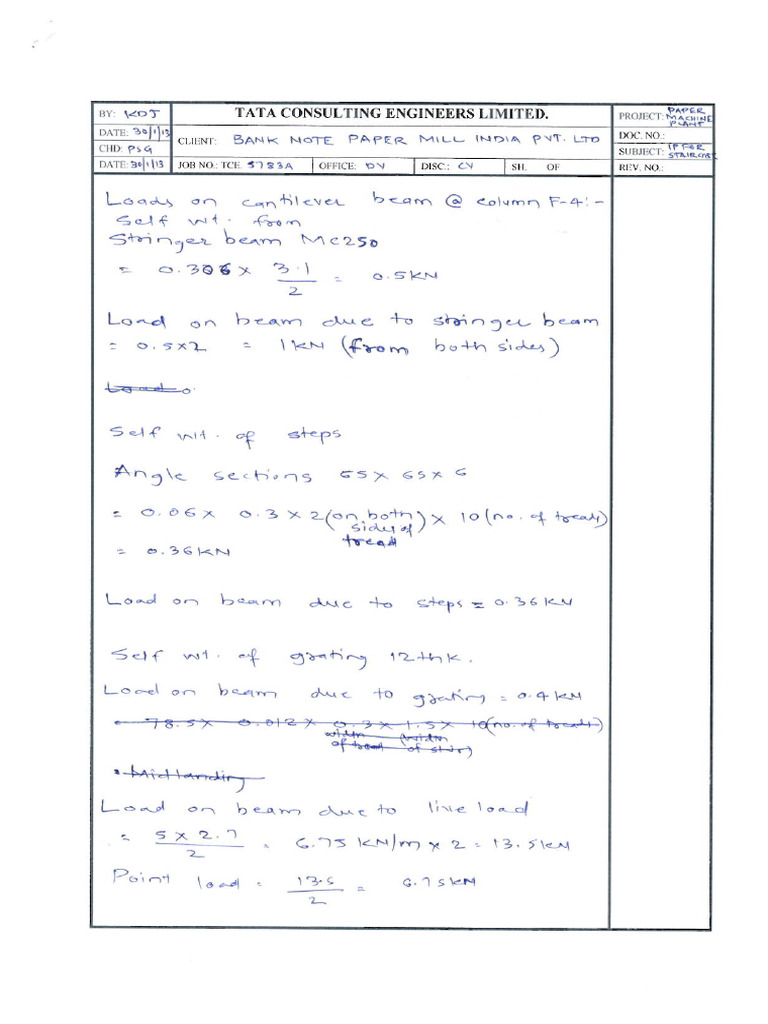 BY: KDJ
TATA CONSULTING ENGINEERS LIMITED.
PROJECT: PAPER MACHINE PLANT
DATE: 30/1/13
CLIENT: BANK NOTE PAPER MILL INDIA PVT. LTD
DOC. NO.:
CHD: PSG
SUBJECT: IP FOR STAIRCASE
DATE: 30/1/13
JOB NO.: TCE. 5783A
OFFICE: DV
DISC.: CV
SH. OF
REV. NO.:
Loads on cantilever beam @ column F-4:-
Self wt. from
Stringer beam MC250
= 0.306 x 3.1/2 = 0.5KN
Load on beam due to stringer beam
= 0.5x2 = 1KN (from both sides)
Load
Self wt. of steps
Angle sections 65x 65x 6
= 0.06x 0.3 x 2(on both sides of tread) x 10 (no. of treads)
= 0.36KN
Load on beam due to steps = 0.36KN
Self wt. of grating 12thk.
Load on beam due to grating = 0.4KN
78.5x 0.012x 0.3x 1.5x 10(no. of treads)
width of tread (width of stair)
Midlanding
Load on beam due to live load
= 5 x 2.7/2 = 6.75 KN/m x 2 = 13.5KN
Point load = 13.5/2 = 6.75KN